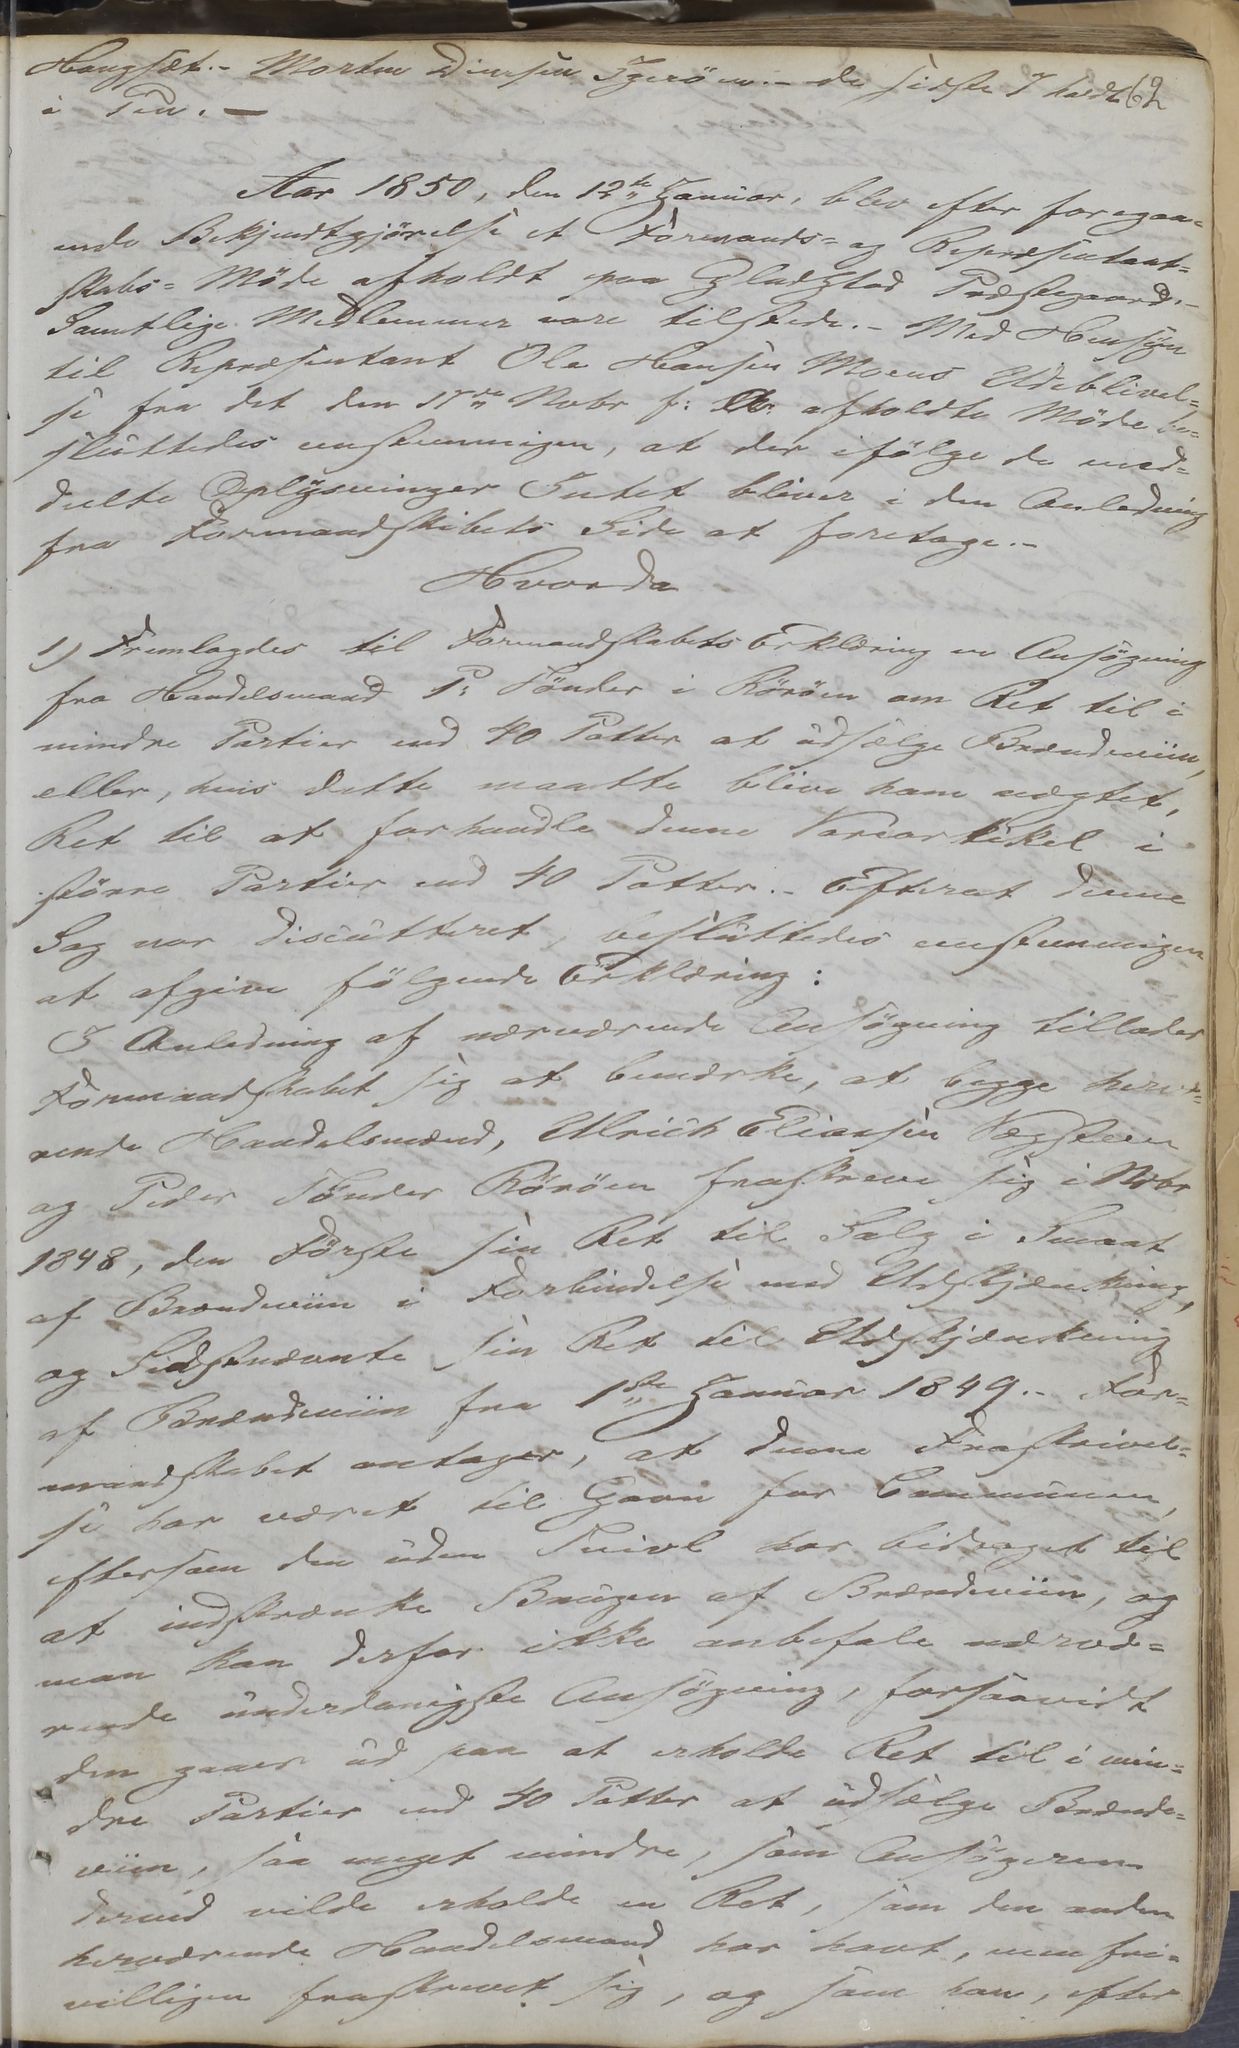 Haugsæt.- Morten Diensen Igerøen.- de sidste 7 holdt 62
i Pen. -
Aar 1850, den 12te Januar, blev efter foregaa-
ende Bekjendtgjörelse et Formands- og Repræsentant-
skabs-Möde afholdt paa Gladstad Præstegaard.-
Samtlige Medlemmer vare tilstede.- Med Hensyn
til Repræsentant Ole Hansen Moens Udeblivel-
se fra det den 17de Nvbr f: A: afholdte Möde be-
sluttedes eenstemmigen, at der ifölge de med-
deelte Oplysninger Intet bliver i den Anledning
fra Formandskabets Side at foretage.-
Hvorda
1) Fremlagdes til Formandskabets Erklæring en Ansögning
fra Handelsmand P: Tönder i Rörøen om Ret til i
mindre Partier end 40 Potter at udsælge Brændeviin,
eller, hvis dette maatte blive ham nægtet,
Ret til at forhandle denne Vareartikel i
større Partier end 40 Potter.- Efterat denne
Sag var discutteret, besluttedes eenstemmigen
at afgive fölgende Erklæring:
I Anledning af nærværende Ansögning tillader
Formandskabet sig at bemærke, at begge hervæ-
rende Handelsmænd, Ulrich Eliassen Vægsteen
og Peder Tönder Rörøen fraskreve sig i Nvbr
1848, den Förste sin Ret til Salg i Smaat
af Brændeviin i Forbindelse med Udskjænkning,
og Sidstnævnte sin Ret til Udskjænkning
af Brændeviin fra 1ste Januar 1849.- For-
mandskabet antager, at denne Fraskrivel-
se har været til Gavn for Communen,
eftersom den uden Tvivl har bidraget til
at indskrænke Brugen af Brændeviin, og
man kan derfor ikke anbefale nærvæ-
rende underdanigste Ansögning, forsaavidt
den gaaer ud paa at erholde Ret til i min-
dre Partier end 40 Potter at udsælge Brænde-
viin, saa meget mindre, som Ansögeren
derved vilde erholde en Ret, som den anden
herværende Handelsmand har havt, men fri-
villigen fraskrevet sig, og som han, efter